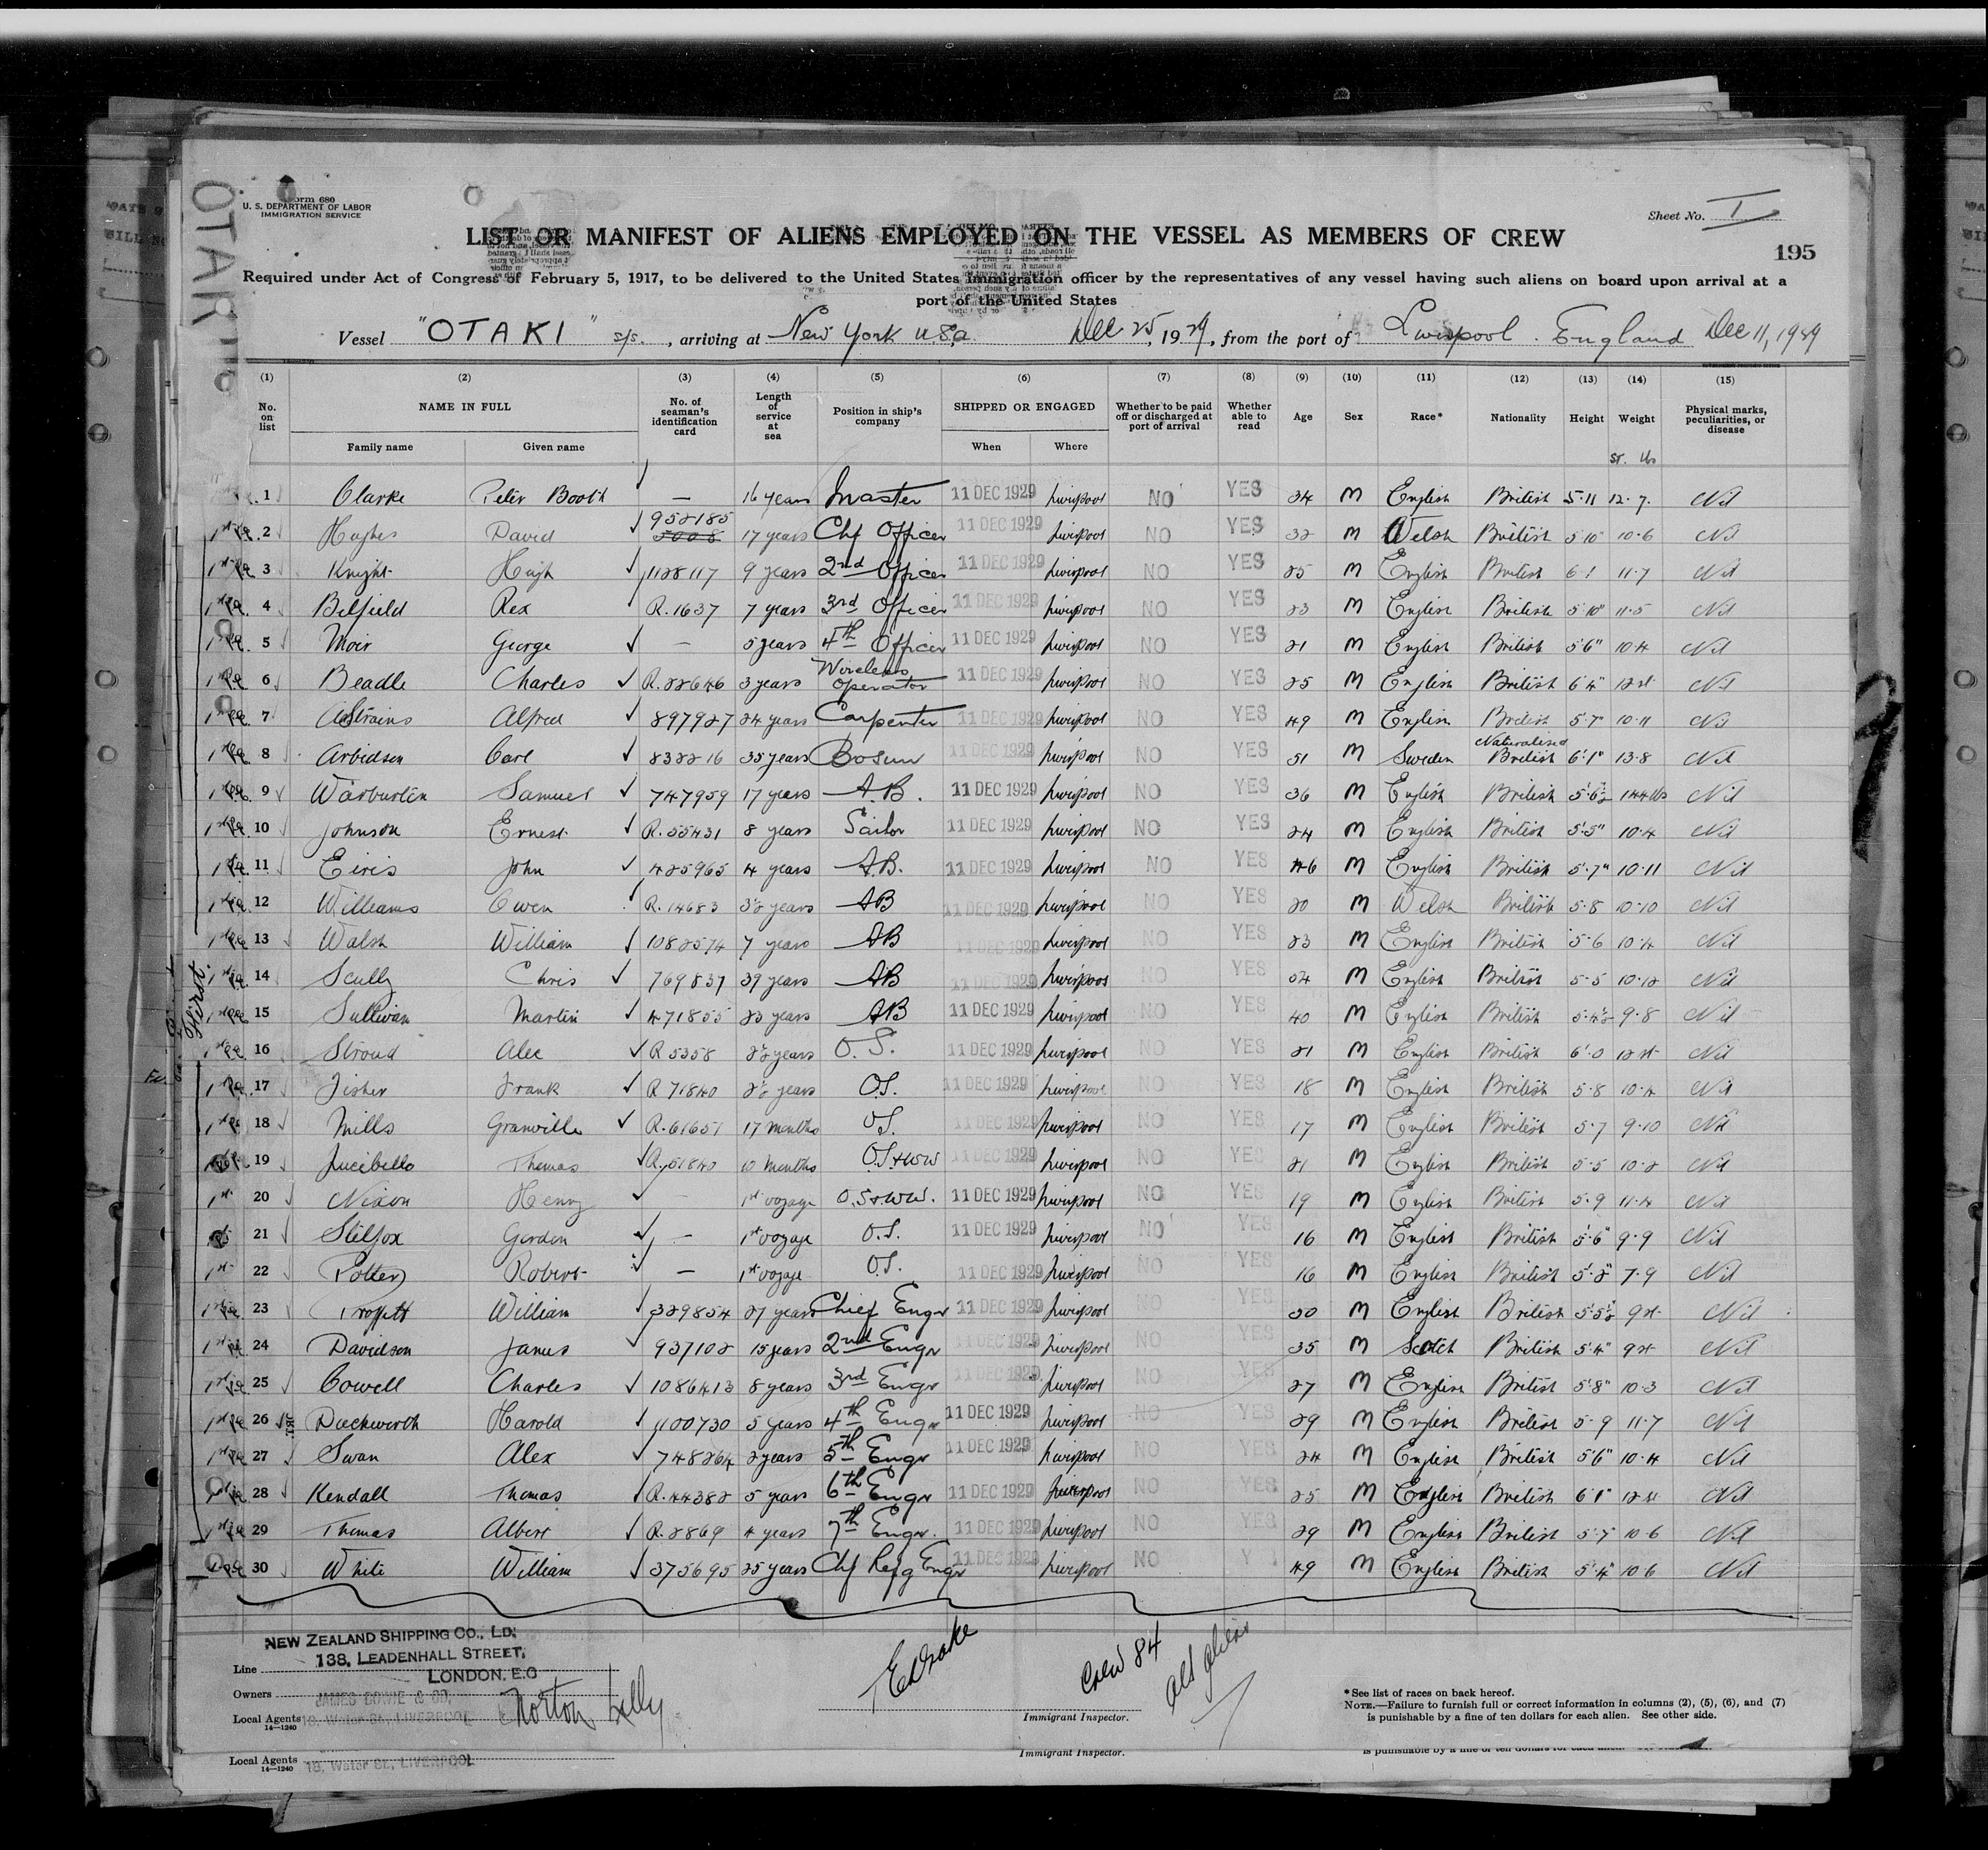 OTAKI
Form 680
U. S. DEPARTMENT OF LABOR
IMMIGRATION SERVICE
Sheet No. I
LIST OR MANIFEST OF ALIENS EMPLOYED ON THE VESSEL AS MEMBERS OF CREW
195
Required under Act of Congress of February 5, 1917, to be delivered to the United States Immigration officer by the representatives of any vessel having such aliens on board upon arrival at a
port of the United States
Vessel "OTAKI" s/s. , arriving at New York USA Dec 25, 1929, from the port of Liverpool. England Dec 11, 1929
(1) (2) (3) (4) (5) (6) (7) (8) (9) (10) (11) (12) (13) (14) (15)
No. on list NAME IN FULL No. of seaman's identification card Length of service at sea Position in ship's company SHIPPED OR ENGAGED Whether to be paid off or discharged at port of arrival Whether able to read Age Sex Race* Nationality Height Weight Physical marks, peculiarities, or disease
Family name Given name When Where
St. lbs
1 Clarke Peter Booth — 16 years Master 11 DEC 1929 Liverpool NO YES 34 M English British 5.11 12.7 Nil
2 Hughes David 952185 17 years Chf Officer 11 DEC 1929 Liverpool NO YES 32 M Welsh British 5'10" 10.6 Nil
3 Knight Hugh 1128117 9 years 2nd Officer 11 DEC 1929 Liverpool NO YES 25 M English British 6'1 11.7 Nil
4 Belfield Rex R.1637 7 years 3rd Officer 11 DEC 1929 Liverpool NO YES 23 M English British 5'10" 11.5 Nil
5 Moir George — 5 years 4th Officer 11 DEC 1929 Liverpool NO YES 21 M English British 5'6" 10.4 Nil
6 Beadle Charles R.22646 3 years Wireless Operator 11 DEC 1929 Liverpool NO YES 25 M English British 6'4" 12 st. Nil
7 Alfred 897927 24 years Carpenter 11 DEC 1929 Liverpool NO YES 49 M English British 5.7" 10.11 Nil
8 Arvidsen Carl 832216 35 years Bosun 11 DEC 1929 Liverpool NO YES 51 M Sweden Naturalised British 6'1" 13.8 Nil
9 Warburton Samuel 747959 17 years A.B. 11 DEC 1929 Liverpool NO YES 36 M English British 5'6½ 144 lbs Nil
10 Johnson Ernest R.55431 8 years Sailor 11 DEC 1929 Liverpool NO YES 24 M English British 5'5" 10.4 Nil
11 Eiris John 425965 4 years A.B. 11 DEC 1929 Liverpool NO YES 46 M English British 5'.7" 10.11 Nil
12 Williams Owen R.14683 3½ years AB 11 DEC 1929 Liverpool NO YES 20 M Welsh British 5.8 10.10 Nil
13 Walsh William 1082574 7 years AB 11 DEC 1929 Liverpool NO YES 23 M English British 5.6 10.4 Nil
14 Scully Chris 769837 39 years AB 11 DEC 1929 Liverpool NO YES 54 M English British 5.5 10.12 Nil
15 Sullivan Martin 471855 23 years AB 11 DEC 1929 Liverpool NO YES 40 M English British 5.4½ 9.8 Nil
16 Stroud Alec R 5358 2½ years O.S. 11 DEC 1929 Liverpool NO YES 21 M English British 6'.0 12 st Nil
17 Fisher Frank R 71840 2½ years O.S. 11 DEC 1929 Liverpool NO YES 18 M English British 5.8 10.4 Nil
18 Mills Granville R.61651 17 months O.S. 11 DEC 1929 Liverpool NO YES 17 M English British 5.7 9.10 Nil
19 Lucibello Thomas R.51840 10 months O.S.+WW 11 DEC 1929 Liverpool NO YES 21 M English British 5.5 10.2 Nil
20 Nixon Henry — 1st voyage O.S+WW. 11 DEC 1929 Liverpool NO YES 19 M English British 5.9 11.4 Nil
21 Stelfox Gordon — 1st voyage O.S. 11 DEC 1929 Liverpool NO YES 16 M English British 5'.6" 9.9 Nil
22 Potter Robert — 1st voyage O.S. 11 DEC 1929 Liverpool NO YES 16 M English British 5'.2" 7.9 Nil
23 William 329854 27 years Chief Engr 11 DEC 1929 Liverpool NO YES 50 M English British 5'.5½ 9 st. Nil
24 Davidson James 937102 15 years 2nd Engr 11 DEC 1929 Liverpool NO YES 35 M Scotch British 5'4" 9 st Nil
25 Cowell Charles 1086413 8 years 3rd Engr 11 DEC 1929 Liverpool NO YES 27 M English British 5'8" 10.3 Nil
26 Duckworth Harold 1100730 5 years 4th Engr 11 DEC 1929 Liverpool NO YES 29 M English British 5.9 11.7 Nil
27 Swan Alex 748264 2 years 5th Engr 11 DEC 1929 Liverpool NO YES 24 M English British 5'6" 10.4 Nil
28 Kendall Thomas R.44382 5 years 6th Engr 11 DEC 1929 Liverpool NO YES 25 M English British 6'1" 12 st Nil
29 Thomas Albert R.2869 4 years 7th Engr. 11 DEC 1929 Liverpool NO YES 29 M English British 5'.7" 10.6 Nil
30 White William 375695 25 years Chf Refg Engr 11 DEC 1929 Liverpool NO 49 M English British 5'.4" 10.6 Nil
First.
NEW ZEALAND SHIPPING CO., LD.
138, LEADENHALL STREET,
LONDON, E.C
Line
Owners JAMES DOWIE & CO.
Local Agents 18, Water St., LIVERPOOL Norton Lilly
14—1240
E Drake
Crew 84
all aliens
Immigrant Inspector.
*See list of races on back hereof.
NOTE.—Failure to furnish full or correct information in columns (2), (5), (6), and (7)
is punishable by a fine of ten dollars for each alien. See other side.
Local Agents 18, Water St., LIVERPOOL
14—1240
Immigrant Inspector.